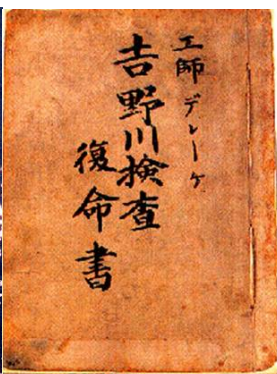 工師デレーケ
吉野川検査
復命書